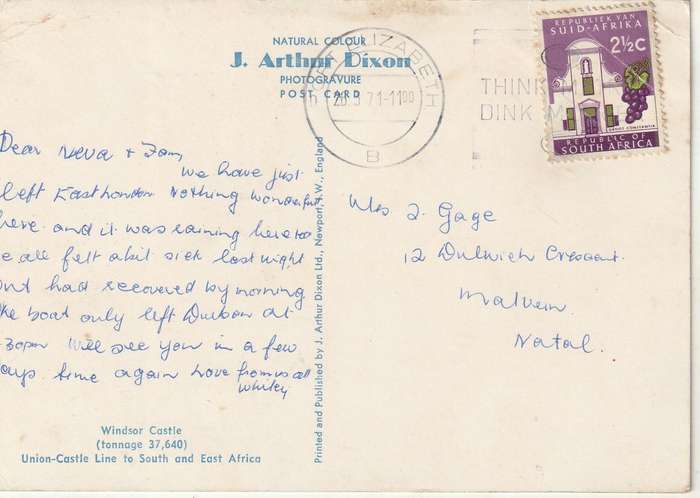 NATURAL COLOUR
J. Arthur Dixon
PHOTOGRAVURE
POST CARD
PORT ELIZABETH
71-11 00
B
THINK
DINK
REPUBLIEK VAN
SUID-AFRIKA
2½c
GROOT CONSTANTIA
REPUBLIC OF
SOUTH AFRICA
Dear Neva + Fam
we have just
left East London Nothing wonderful
here and it was raining here too
we all felt abit sick last night
and had recovered by morning
the boat only left Durban at
30pm Will see you in a few
days time again Love from us all
Whiley
Windsor Castle
(tonnage 37,640)
Union-Castle Line to South and East Africa
Printed and Published by J. Arthur Dixon Ltd., Newport, I.W., England
Mrs J. Gage
12 Dulwich Crescent
Malvern
Natal.